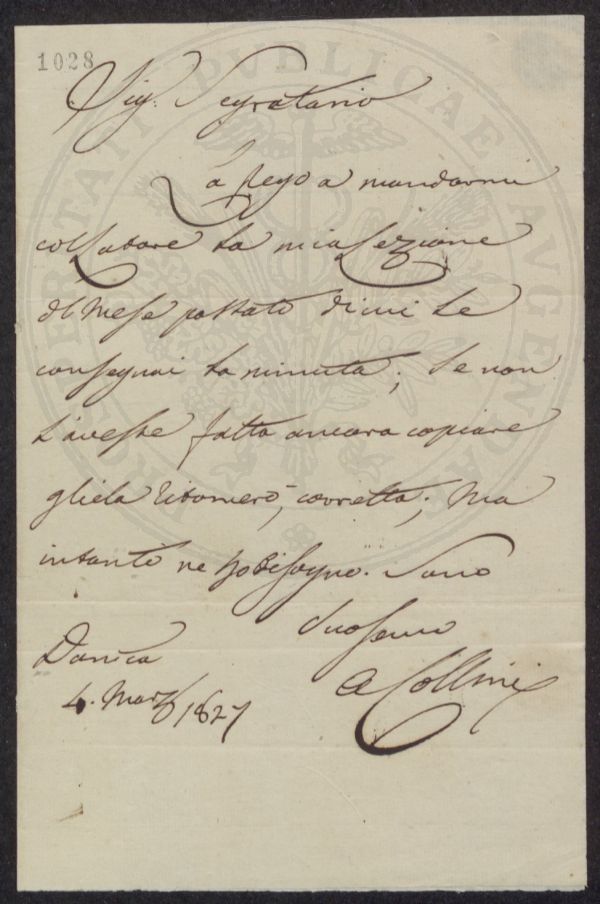 1028
Sig: Segretario
La prego a mandarmi
la mia Lezione
del Mese passato di cui Le
consegnai la minuta; Se non
l'avesse fatta ancora copiare
gliela ritornerò, corretta; Ma
intanto ne ho bisogno. Sono
Suo Servo
Da casa
A Collini
4. Marzo 1827
PUBLICAE AUGENDAE